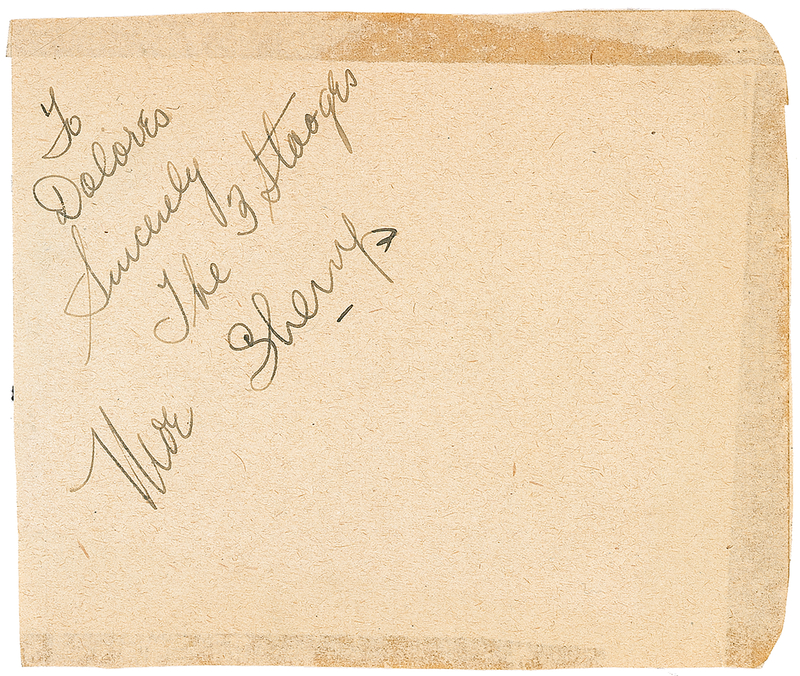 To
Dolores
Sincerely
The 3 Stooges
Moe Shemp